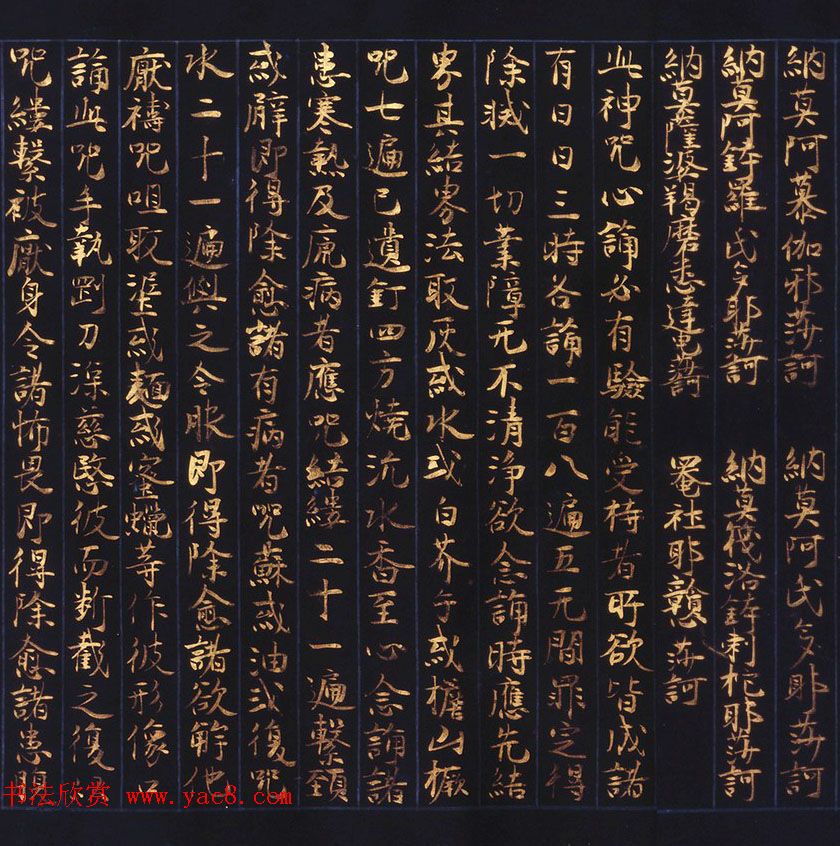 納莫阿慕伽邪莎訶 納莫阿氏多耶莎訶
納莫阿鉢羅氏多耶莎訶 納莫筏洛鉢剌柁耶莎訶
納莫薩婆羯磨悉達也莎訶 罨社耶戇莎訶
此神咒心誦必有驗能受持者所欲皆成諸
有日日三時各誦一百八遍五无間罪定得
除滅一切業障无不清淨欲念誦時應先結
界其結界法取灰或水或白芥子或檐山橛
咒七遍已遺釘四方燒沉水香至心念誦諸
患寒熱及鬼病者應咒結縷二十一遍繫頸
或臂即得除愈諸有病者咒蘇或油或復咒
水二十一遍與之令服即得除愈諸欲解他
厭禱咒咀取埿或麵或蜜蠟等作彼形像以
誦此咒手執剛刀深慈愍彼而斷截之復以
咒縷繫被厭身令諸怖畏即得除愈諸患眼
书法欣赏 www.yac8.com